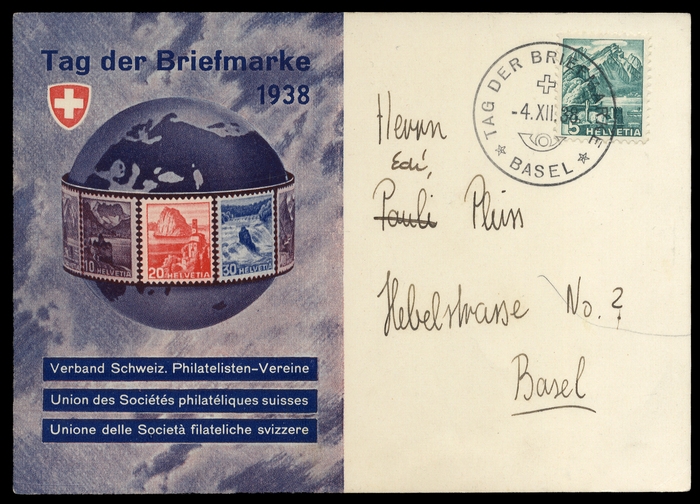 Tag der Briefmarke
1938
10 HELVETIA
20 HELVETIA
30 HELVETIA
Verband Schweiz. Philatelisten-Vereine
Union des Sociétés philatéliques suisses
Unione delle Società filateliche svizzere
TAG DER BRIEFMARKE
-4.XII.38
BASEL
5 HELVETIA
Herrn
Edi,
Pauli Pluss
Hebelstrasse No. ?
Basel